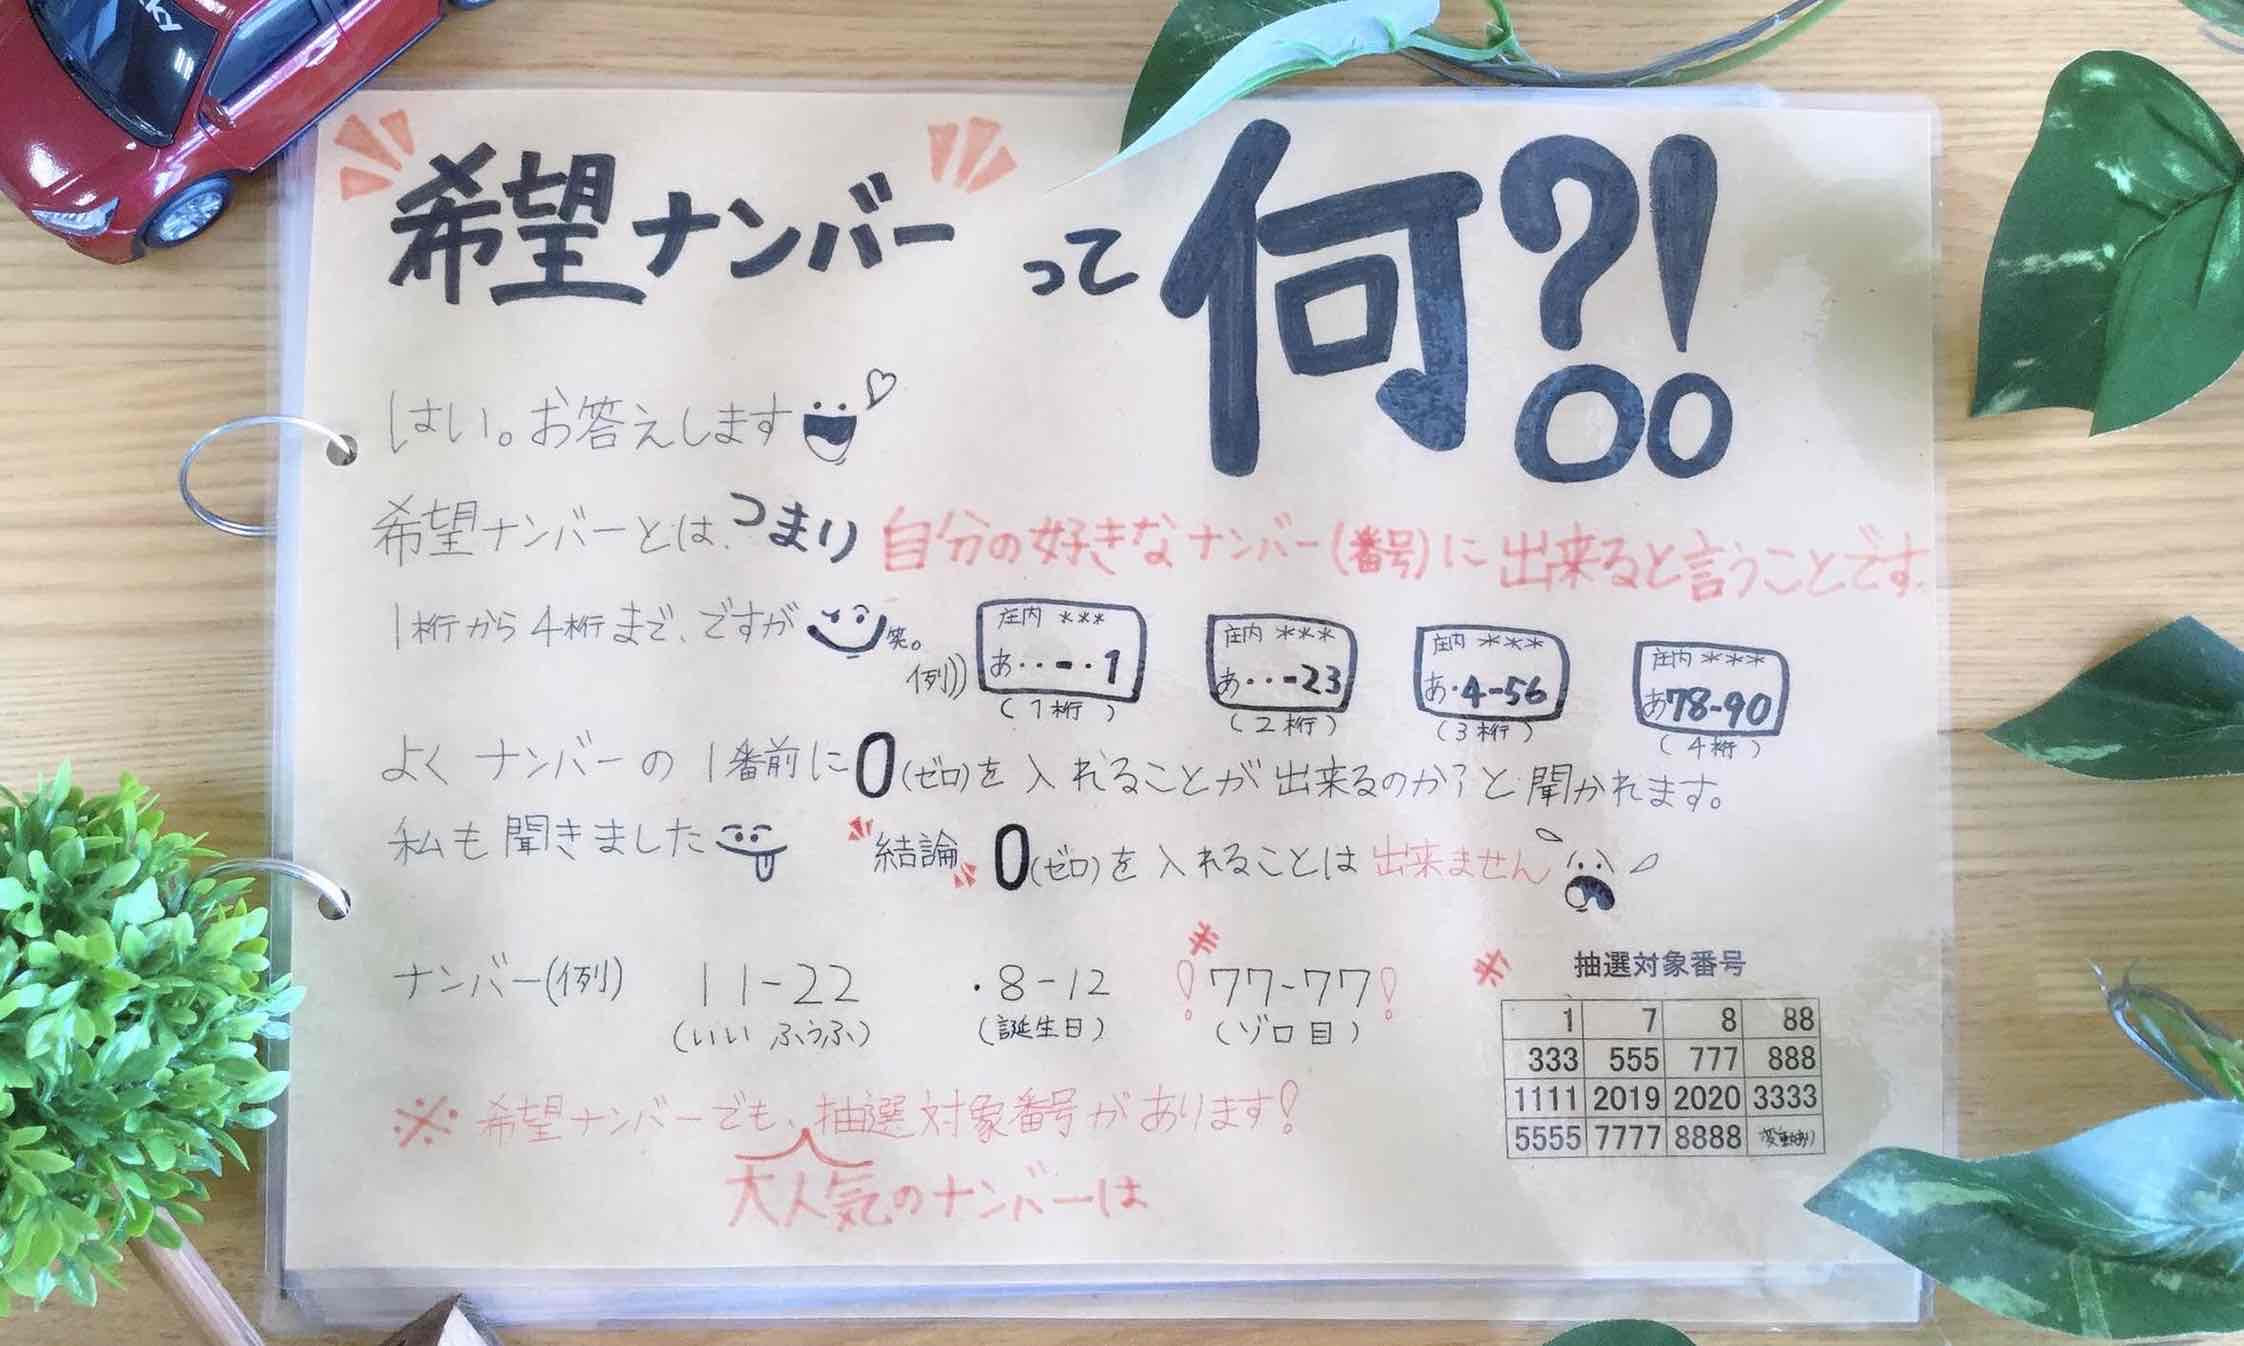 希望ナンバーって何?!
はい。お答えします
希望ナンバーとは、つまり自分の好きなナンバー(番号)に出来ると言うことです。
1桁から4桁まで、ですが笑。
例))
庄内 ***
あ・・-・1
(1桁)
庄内 ***
あ・・-23
(2桁)
庄内 ***
あ・4-56
(3桁)
庄内 ***
あ78-90
(4桁)
よくナンバーの1番前に0(ゼロ)を入れることが出来るのか?と聞かれます。
私も聞きました
結論 0(ゼロ)を入れることは出来ません
ナンバー(例) 11-22 ・8-12 !77-77!
(いいふうふ) (誕生日) (ゾロ目)
※希望ナンバーでも、抽選対象番号があります!
大人気のナンバーは
抽選対象番号
1 7 8 88
333 555 777 888
1111 2019 2020 3333
5555 7777 8888 変動あり